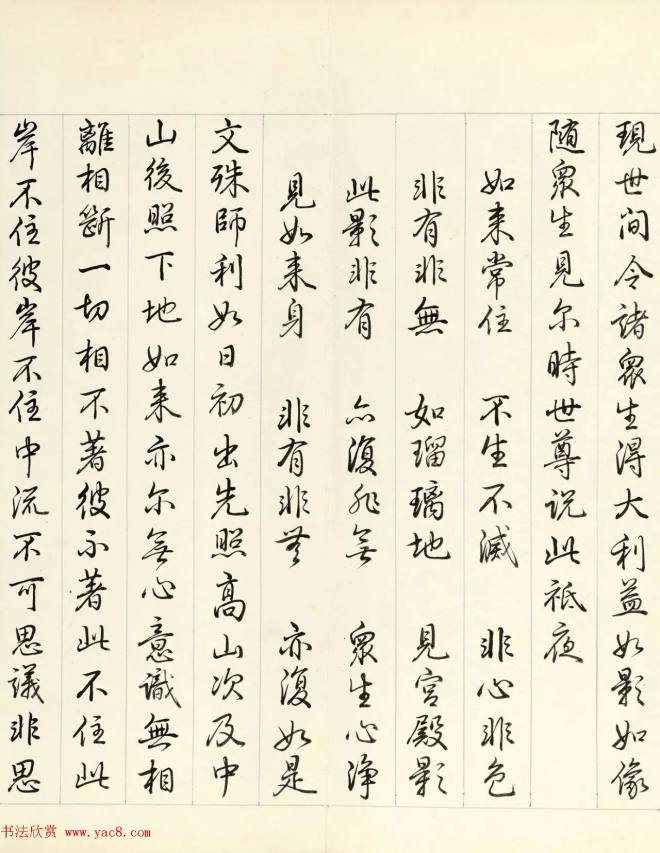 現世间令諸眾生得大利益如影如像
随眾生見尔時世尊说此祇夜
如来常住 不生不滅 非心非色
非有非無 如瑠璃地 見宮殿影
此影非有 亦復非無 眾生心浄
見如来身 非有非無 亦復如是
文殊師利如日初出先照高山次及中
山後照下地如来亦尔無心意識無相
離相斷一切相不著彼不著此不住此
岸不住彼岸不住中流不可思議非思
书法欣赏 www.yac8.com